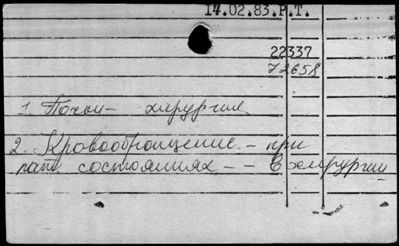 14.02.83.Р.Т.
22337
72658
1. Почки – хирургия
2. Кровообращение – при
пат. состояниях – – В хирургии